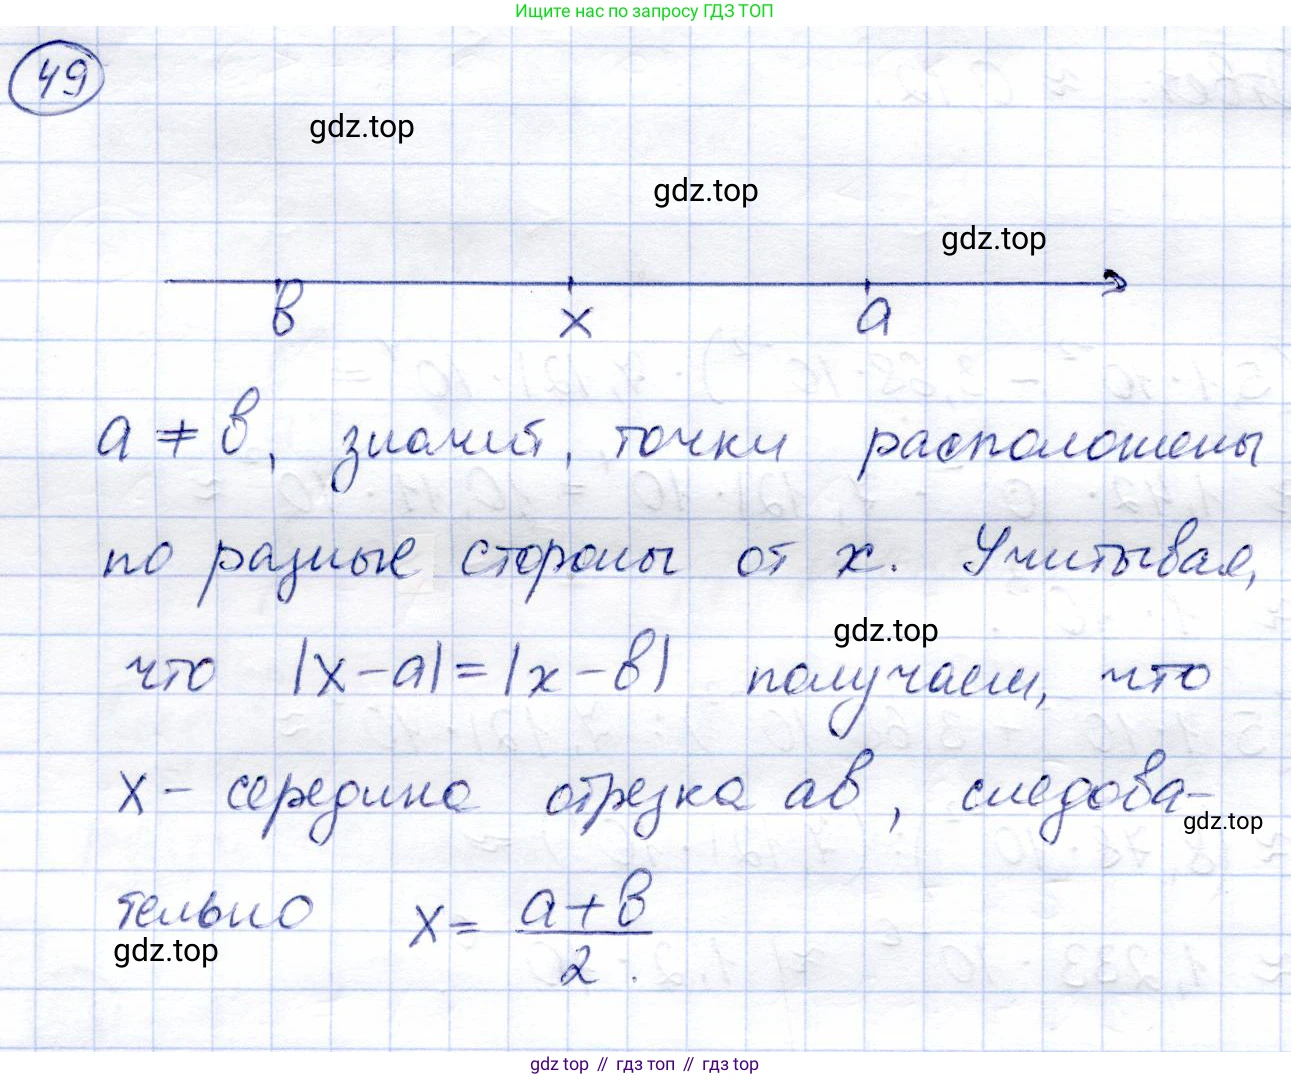 Ищите нас по запросу ГДЗ ТОП
49
gdz.top
gdz.top
gdz.top
в x a
a ≠ в, значит, точки расположены
по разные стороны от x. Учитывая,
gdz.top
что |x-a|=|x-в| получаем, что
x - середина отрезка aв, следова-
gdz.top
тельно x = \frac{a+в}{2}.
gdz.top
gdz top // гдз топ // гдз top